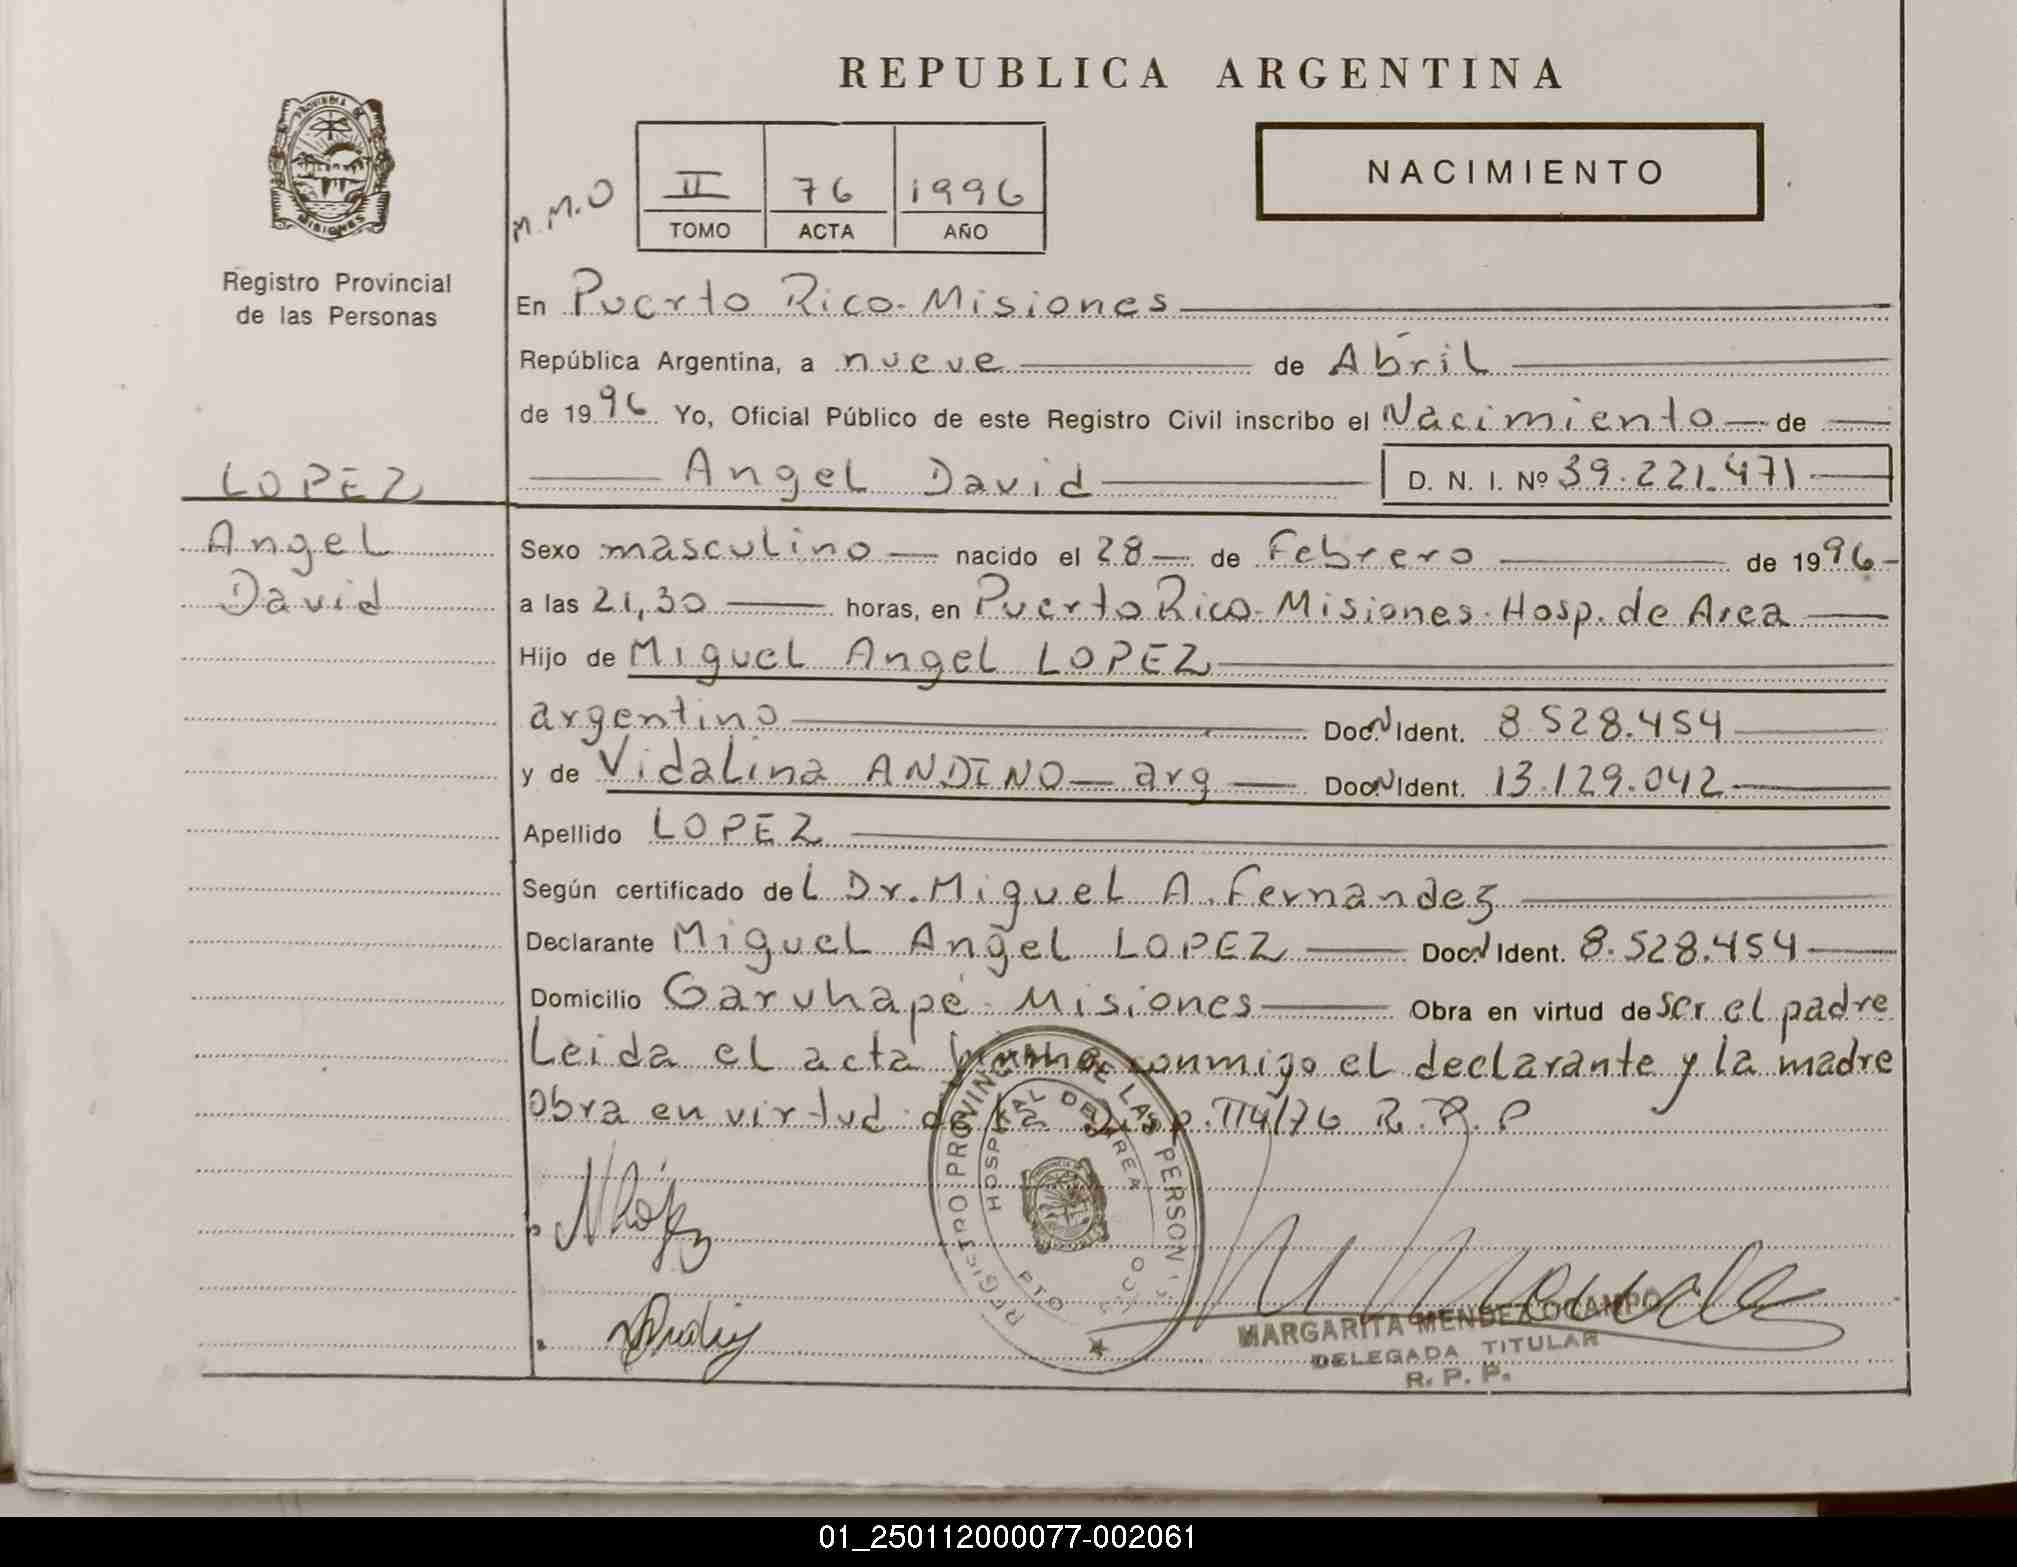 REPUBLICA ARGENTINA
PROVINCIA DE
MISIONES
Registro Provincial
de las Personas
M.M.O
II 76 1996
TOMO ACTA AÑO
NACIMIENTO
En Puerto Rico-Misiones
República Argentina, a nueve de Abril
de 1996 Yo, Oficial Público de este Registro Civil inscribo el Nacimiento de
Angel David D. N. I. Nº 39.221.471
LOPEZ
Angel
David
Sexo masculino nacido el 28 de Febrero de 1996
a las 21,30 horas, en Puerto Rico-Misiones-Hosp. de Area
Hijo de Miguel Angel LOPEZ
argentino Doc. N Ident. 8.528.454
y de Vidalina ANDINO arg Doc. N Ident. 13.129.042
Apellido LOPEZ
Según certificado del Dr. Miguel A. Fernandez
Declarante Miguel Angel LOPEZ Doc. N Ident. 8.528.454
Domicilio Garuhapé-Misiones Obra en virtud de ser el padre
Leida el acta firma conmigo el declarante y la madre
Obra en virtud de la Disp. 114/76 R.P.P
REGISTRO PROVINCIAL DE LAS PERSON
HOSPITAL DE AREA
PTO
MARGARITA MENDEZ OCAMPO
DELEGADA TITULAR
R. P. P.
01_250112000077-002061